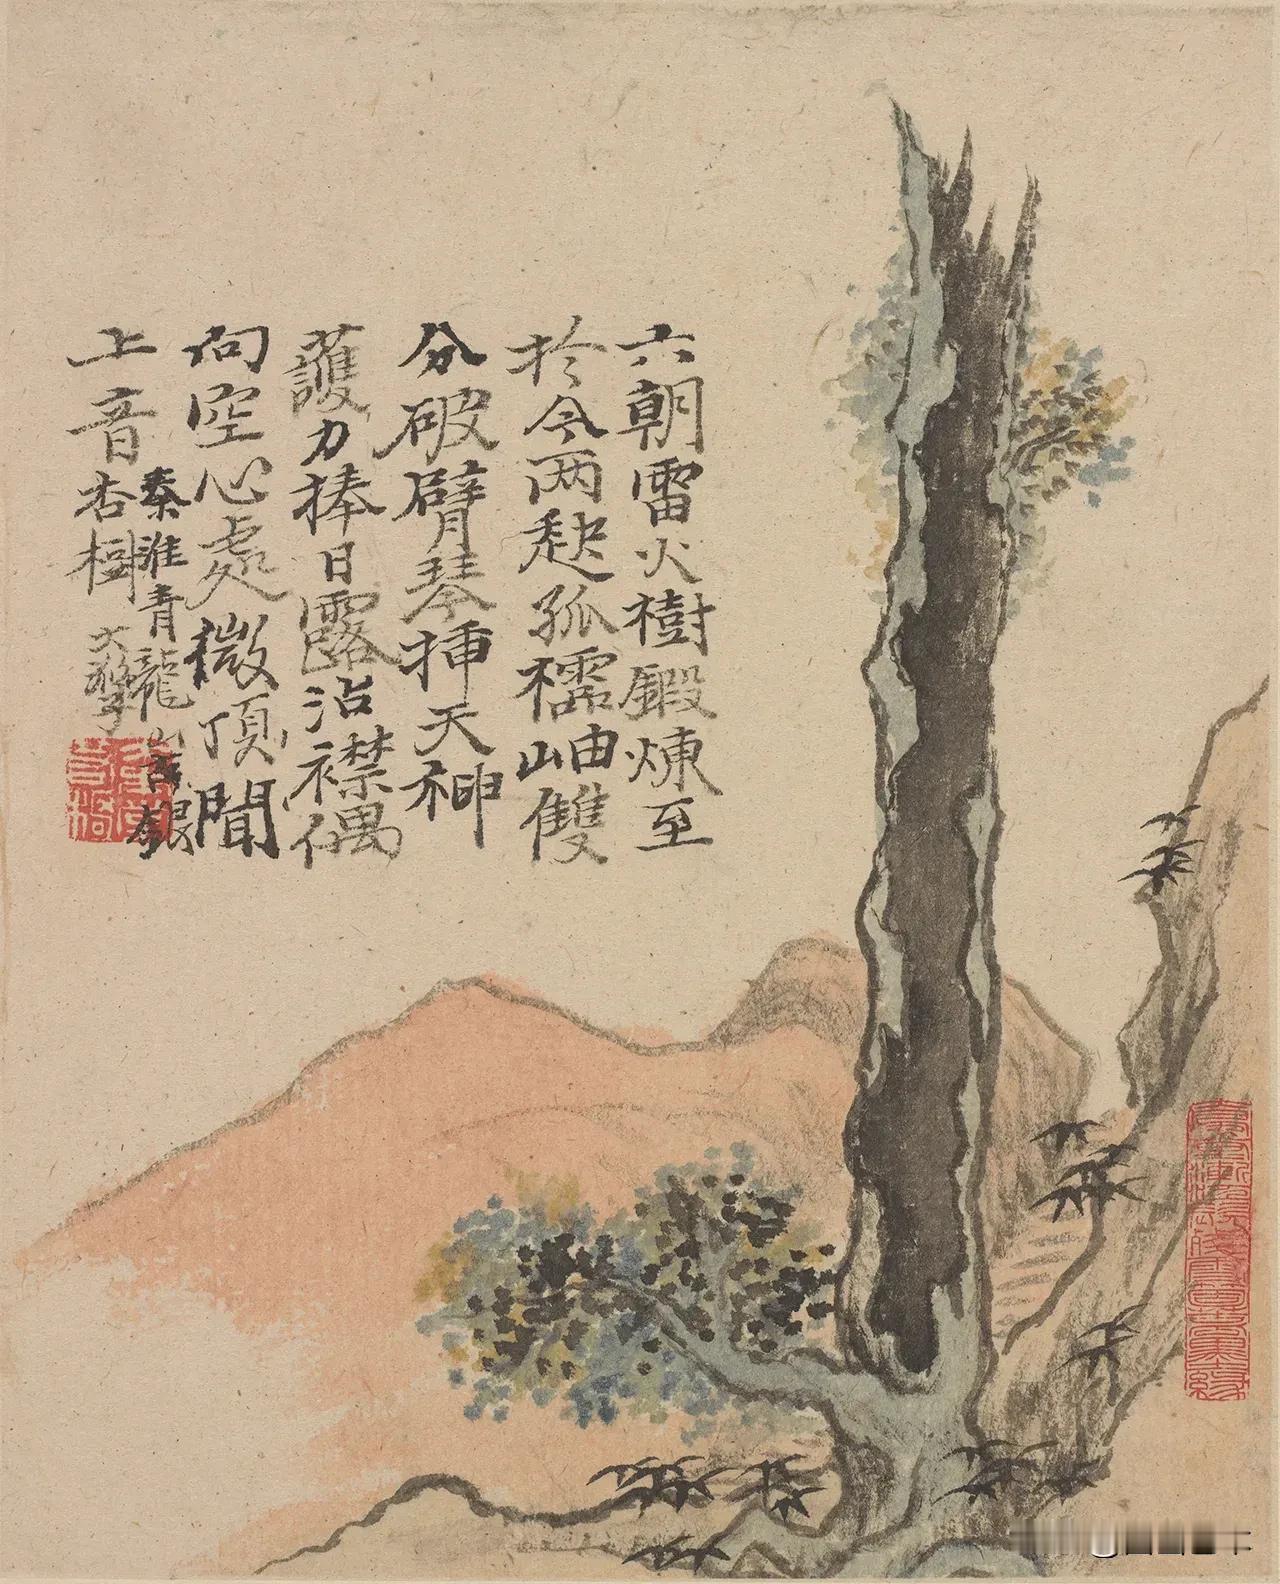 六朝雷火樹鍛煉至
於今兩趐孤襦岫雙
分破臂琴揷天神
護力捧日露沾襟偶
向空心處微頂聞
上音
秦淮青龍山古銀
杏樹
大滌子